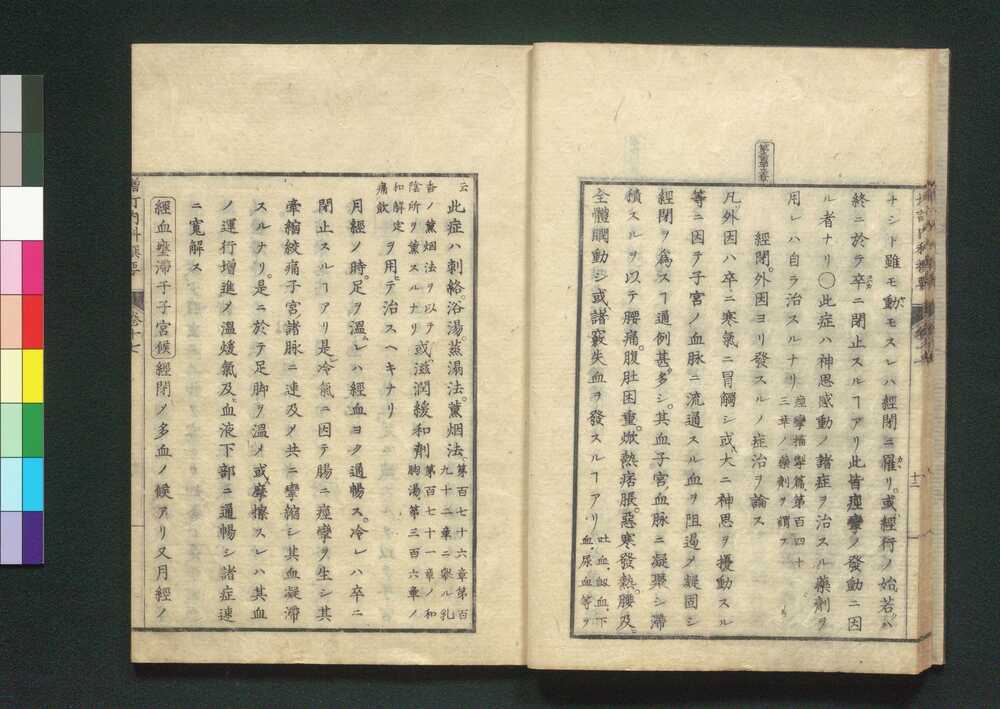 ナシト雖モ動モスレハ經閉ニ罹リ。或經行ノ始。若ハ
終ニ於テ卒ニ閉止スルヿアリ此皆痙攣ノ發動ニ因
ル者ナリ〇此症ハ神思感動ノ諸症ヲ治スル藥劑ヲ
用レハ自ラ治スルナリ
痙攣指掣篇第百四十
三章ノ藥劑ヲ謂フ
經閉。外因ヨリ發スルノ症治ヲ論ス
凡。外因ハ卒ニ寒氣ニ冒觸シ或大ニ神思ヲ擾動スル
等ニ因テ子宮ノ血脉ニ流通スル血ヲ阻遏ヲ凝固シ
經閉ヲ為スヿ通例甚多シ。其血子宮血脉ニ凝聚シ滯
積スルヲ以テ腰痛。腹肚困重。焮熱痞脹。惡寒發熱。腰及。
全體瞤動シ或諸竅失血ヲ發スルヿアリ
吐血。衂血。下
血。尿血等ヲ
云
此症ハ刺絡。浴湯。蒸漏法。薰烟法。
第百七十六章第百
九十二章ニ擧ル乳
香ノ薰烟法ヲ以テ
陰所ヲ薰スルナリ
或滋潤緩和劑
第百七十一章ノ和
胸湯第三百六章ノ
和解定
痛飲
ヲ用。テ治スヘキナリ
月經ノ時。足ヲ溫。レハ經血ヨク通暢ス。冷レハ卒ニ
閉止スルヿアリ是冷氣ニ因テ腸ニ痙攣ヲ生シ其
牽縮絞痛子宮諸脉ニ連及乄共ニ攣縮シ其血凝滯
スルナリ。是ニ於テ足脚ヲ溫メ或摩擦スレハ其血
ノ運行增進乄溫煖氣及血液下部ニ通暢シ諸症速
ニ寛解ス
經血壅滯于子宮候 經閉ノ多血ノ候アリ又月經ノ
增訂內科撰要 卷十七